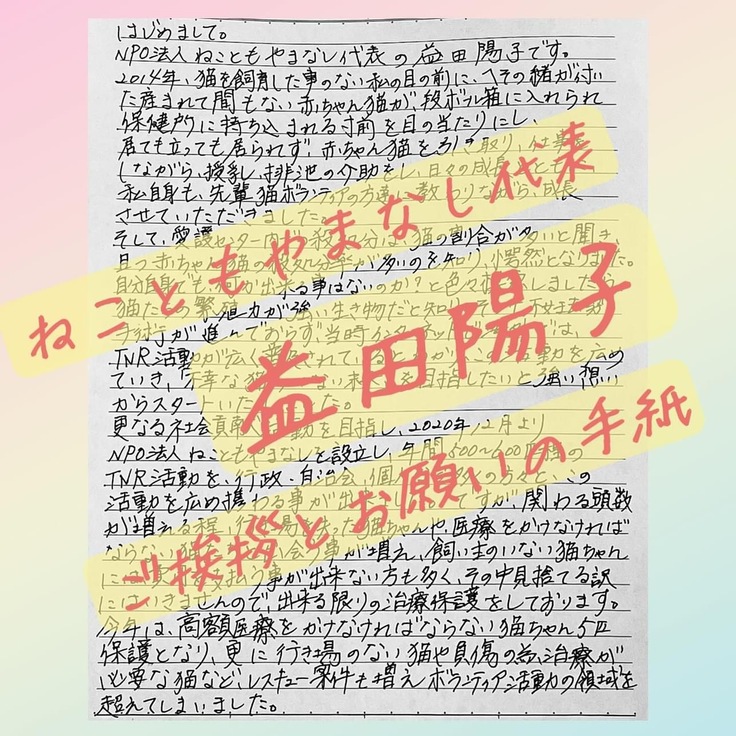 はじめまして。
NPO法人ねこともやまなし代表の益田陽子です。
2014年、猫を飼育した事のない私の目の前に、へその緒が付い
た産まれて間もない赤ちゃん猫が、段ボール箱に入れられ
保健所に持ち込まれる寸前を目の当たりにし、
居ても立っても居られず、赤ちゃん猫を引き取り、仕事を
しながら、授乳、排泄の介助をし、日々の成長と
私自身も、先輩猫ボランティアの方達に教わりながら、成長
させていただきました。
そして、愛護センター内での殺処分は、猫の割合が多いと聞き、
且の赤ちゃん猫の殺処分率が多いのを知り、愕然となりました。
自分自身でも何か出来る事はないのか?と色々
猫たちの繁殖力が強い生き物だと知り、
手術が進んでおらず、当時インターネット
TNR活動が広く
ていき、不幸な猫を目指したいと強い想い
からスタート
更なる社会貢献活動を目指し、2020年12月より
NPO法人ねこともやまなしを設立し、年間500〜600匹程の
TNR活動を、行政、自治会、個
活動を広め携わる事が出来ですが、関わる頭数
が増える程、行き場猫ちゃんや、医療をかけなければ
ならない猫事が増え、飼い主のいない猫ちゃん
には払う事が出来ない方も多く、その中見捨てる訳
にはいきませんので、出来る限りの治療保護をしております。
今年は、高額医療をかけなければならない猫ちゃん5匹
保護となり、更に行き場のない猫や負傷の為、治療が
必要な猫など、レスキュー案件も増え、ボランティア活動の領域を
超えてしまいました。
ねこともやまなし代表
益田陽子
ご挨拶とお願いの手紙